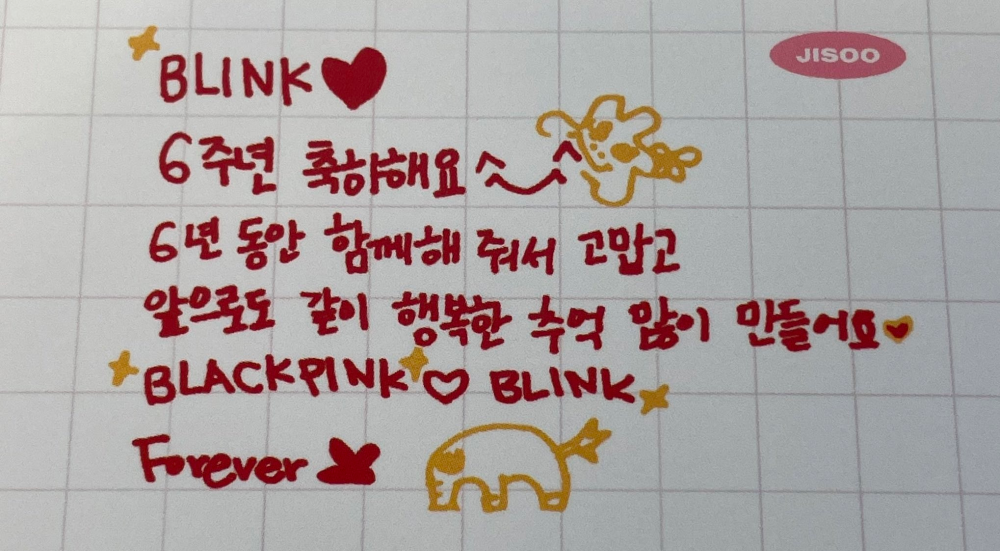 JISOO
BLINK♥
6주년 축하해요^‿^
6년 동안 함께해 줘서 고맙고
앞으로도 같이 행복한 추억 많이 만들어요♥
BLACKPINK♡ BLINK
Forever